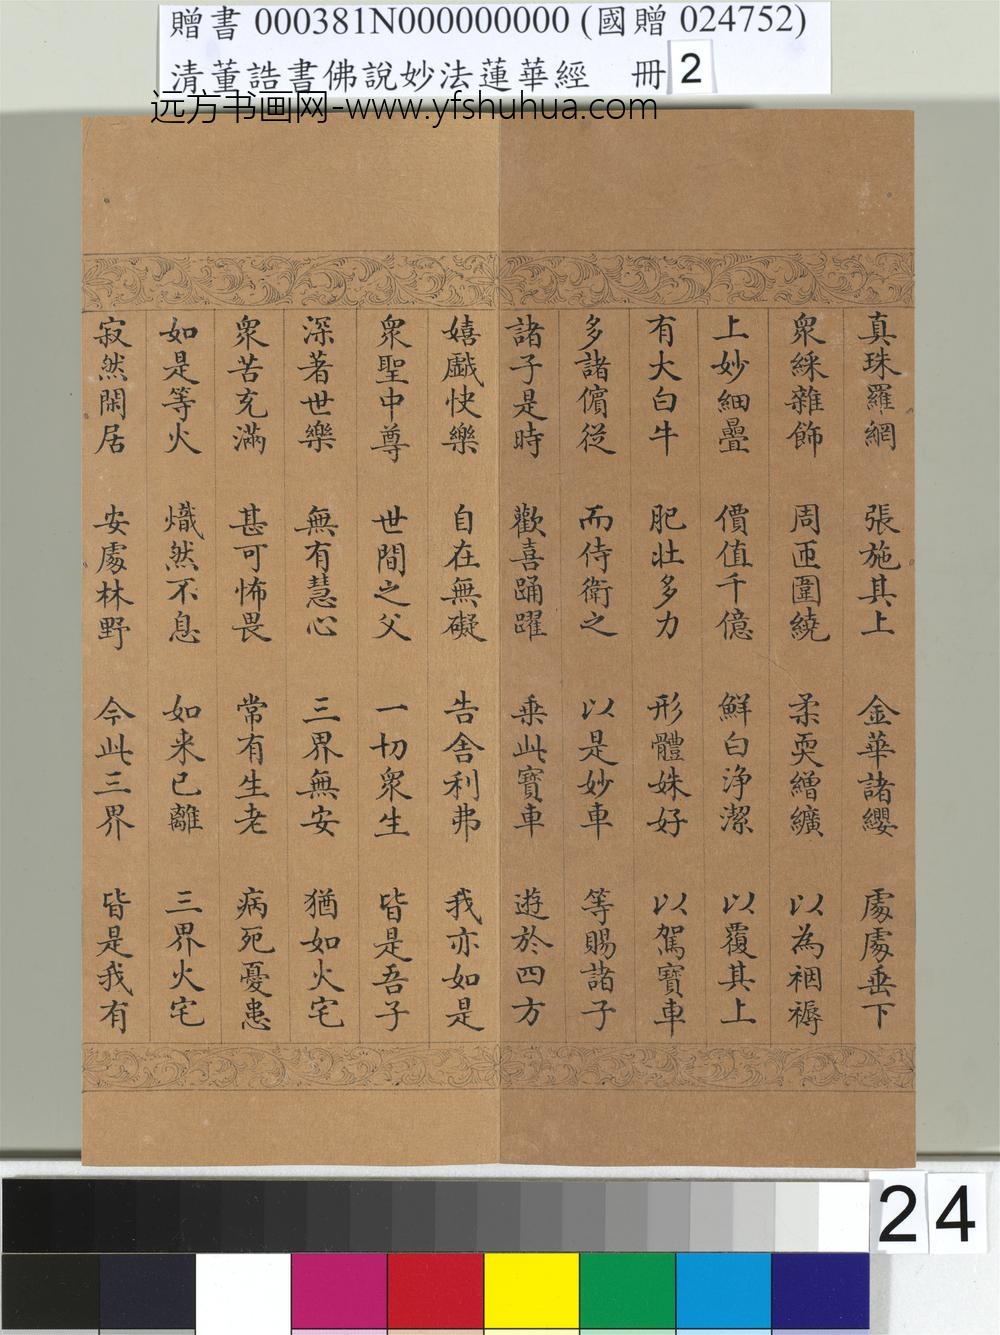 贈書 000381N000000000 (國贈 024752)
清董誥書佛說妙法蓮華經 冊 2
远方书画网-www.yfshuhua.com
真珠羅網 張施其上 金華諸纓 處處垂下
衆綵雜飾 周匝圍繞 柔耎繒纊 以為裀褥
上妙細疊 價值千億 鮮白淨潔 以覆其上
有大白牛 肥壯多力 形體姝好 以駕寶車
多諸儐從 而侍衛之 以是妙車 等賜諸子
諸子是時 歡喜踊躍 乘此寶車 遊於四方
嬉戲快樂 自在無礙 告舍利弗 我亦如是
衆聖中尊 世間之父 一切衆生 皆是吾子
深著世樂 無有慧心 三界無安 猶如火宅
衆苦充滿 甚可怖畏 常有生老 病死憂患
如是等火 熾然不息 如来已離 三界火宅
寂然閑居 安處林野 今此三界 皆是我有
24